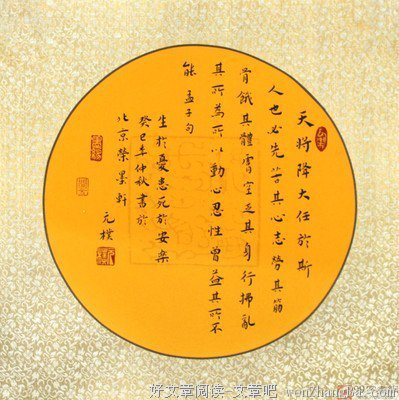 天将降大任於斯
人也必先苦其心志勞其筋
骨餓其體膚空乏其身行拂亂
其所為所以動心忍性曾益其所不
能 孟子句
生於憂患死於安樂
癸巳年仲秋書於
北京榮墨軒 元樸
好文章阅读-文章吧 wenzhangba.com